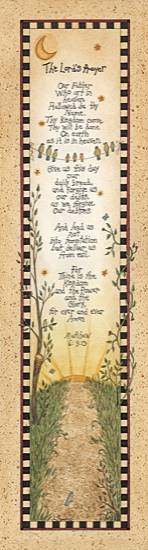 The Lord's Prayer
Our Father
Who art in
heaven
Hallowed be thy
Name.
Thy Kingdom come
Thy will be done
On earth
as it is in heaven.
Give us this day
our daily
bread, and
forgive us
our debts,
as we forgive
Our debtors.
And lead us
not
into temptation
but deliver us
from evil.
For
Thine is the
Kingdom
and the Power
and the
Glory,
for ever and ever
Amen.
Matthew
6:9-13